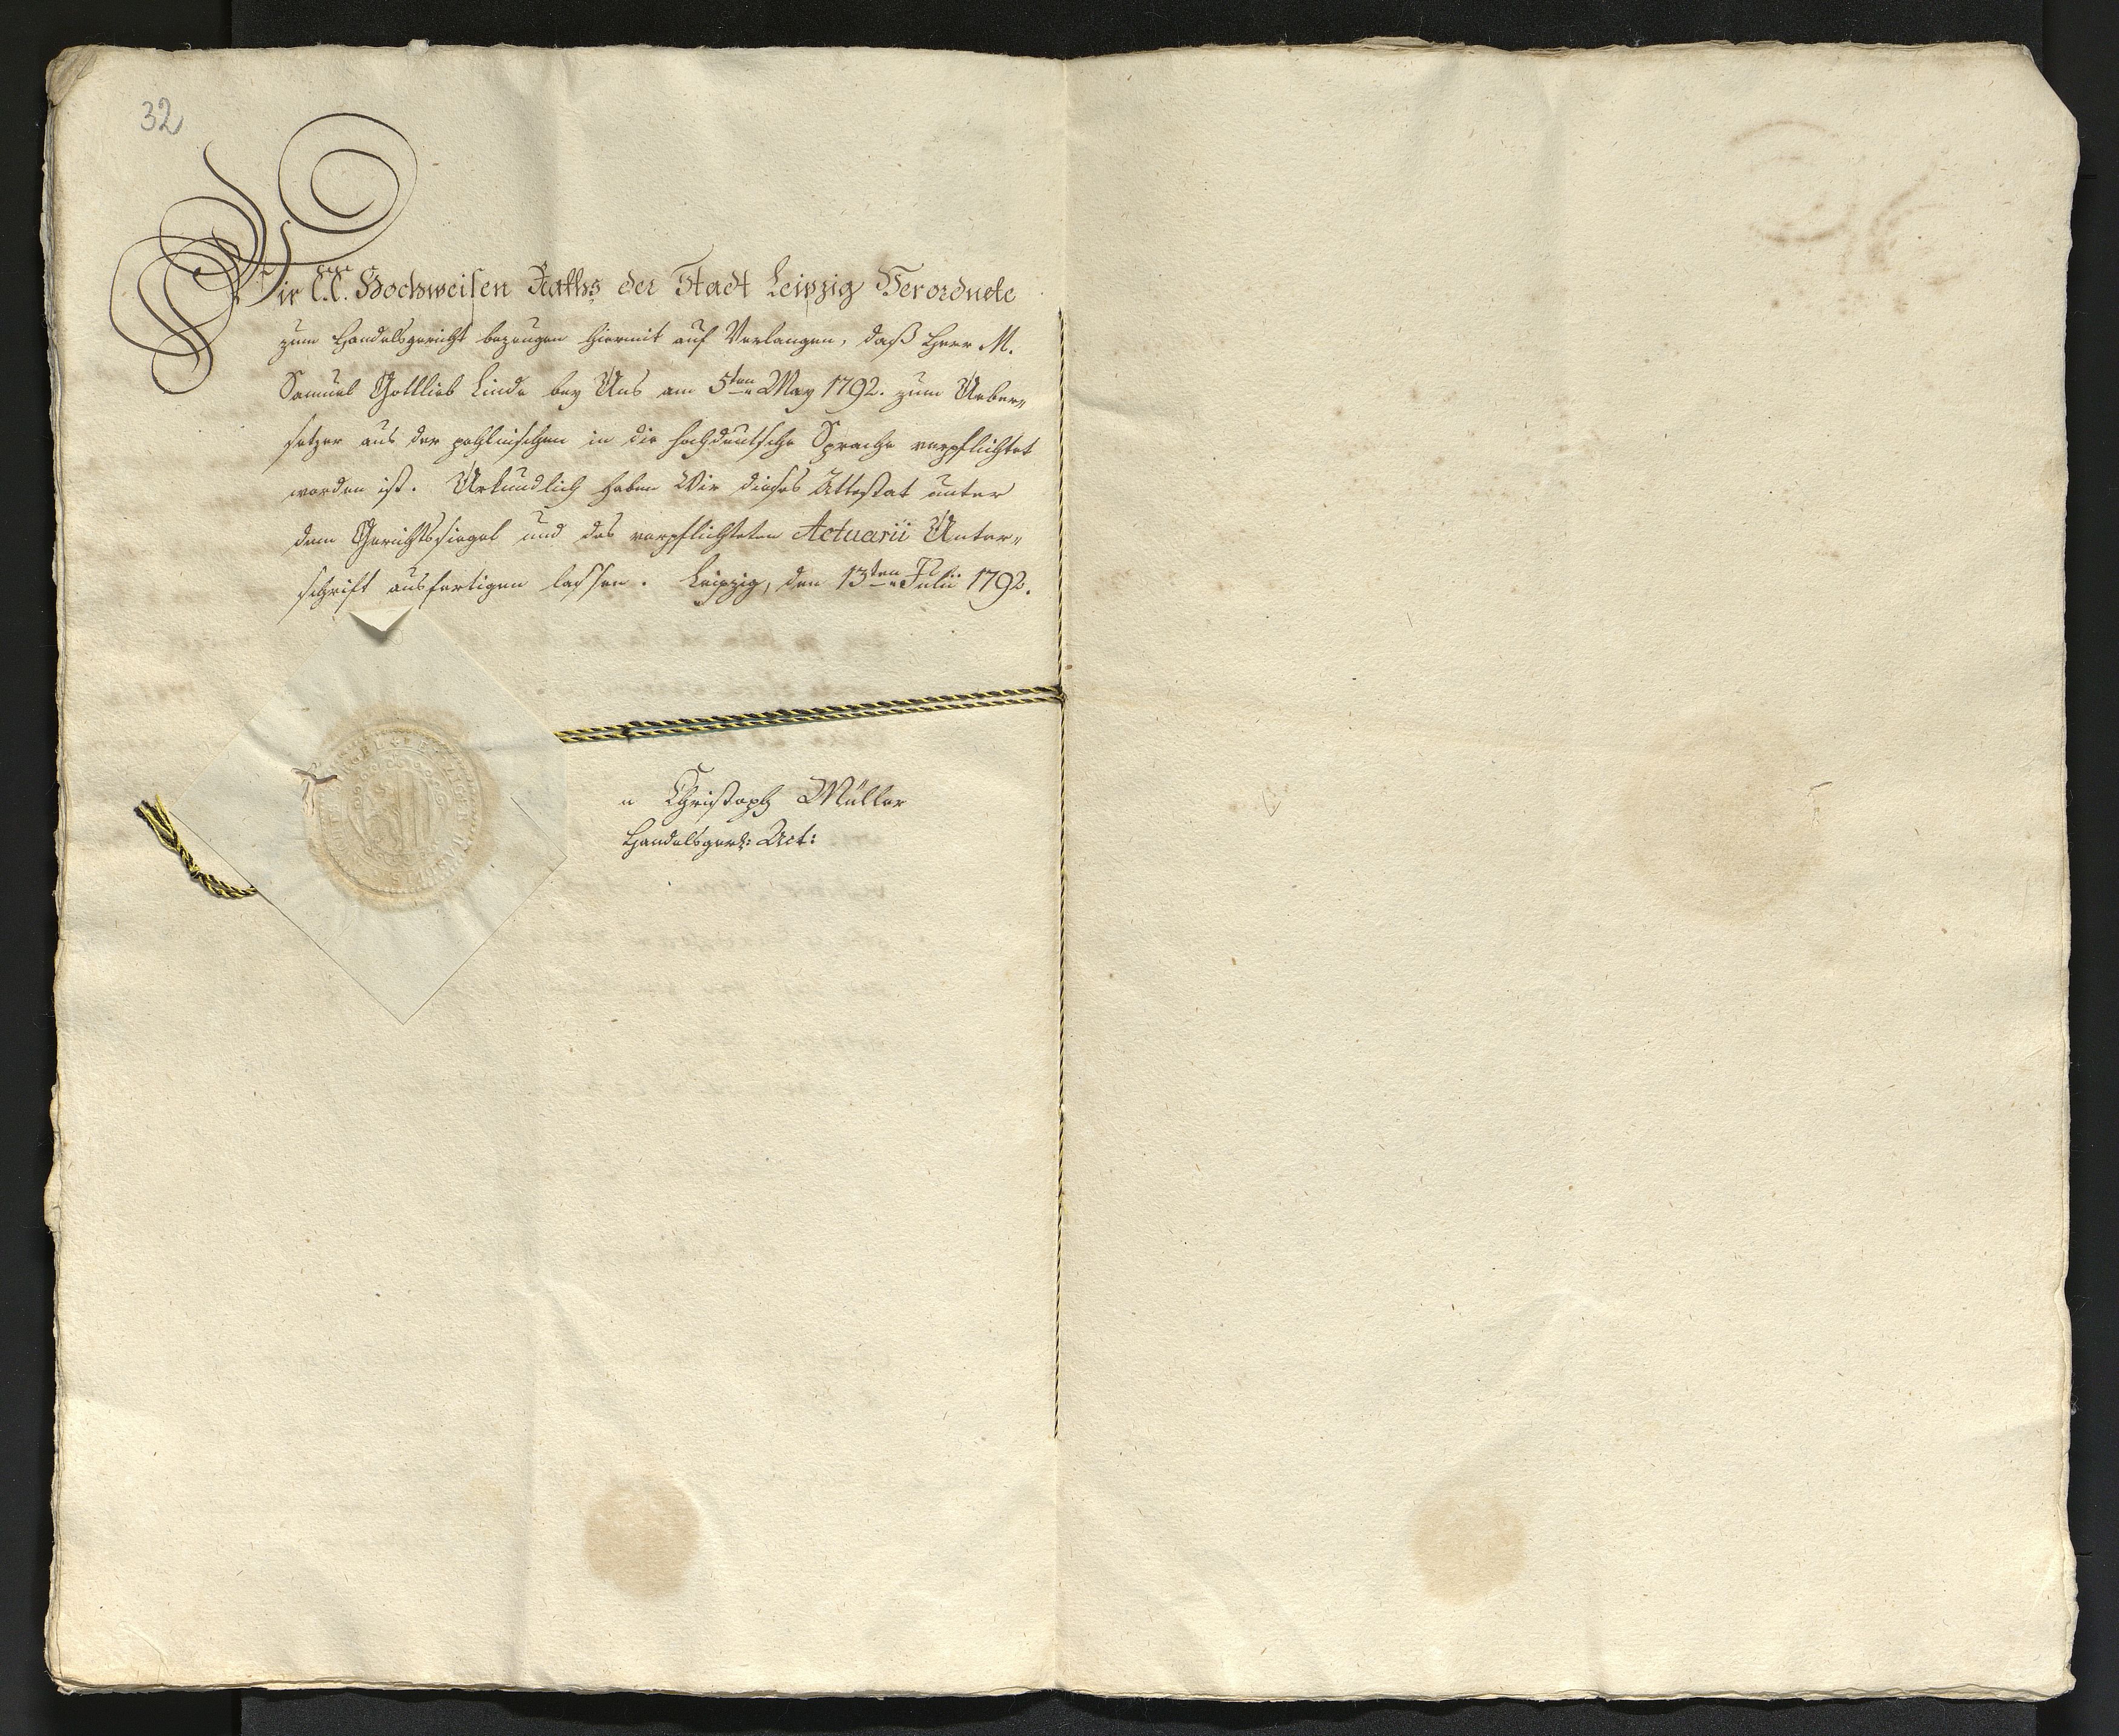 32
Wir E.E. Hochweisen Raths der Stadt Leipzig Verordnete
zum Handelsgericht bezeugen hiermit auf Verlangen, daß Herr M.
Samuel Gottlieb Linde bey Uns am 5ten May 1792. zum Ueber„
setzer aus der pohlnischen in die hochdeutsche Sprache verpflichtet
worden ist. Urkundlich haben Wir dieses Attestat unter
dem Gerichtssiegel und des verpflichteten Actuarii Unter„
schrift ausfertigen lassen. Leipzig, den 13ten Julii 1792.
Christoph Müller
Handelsger: Act: